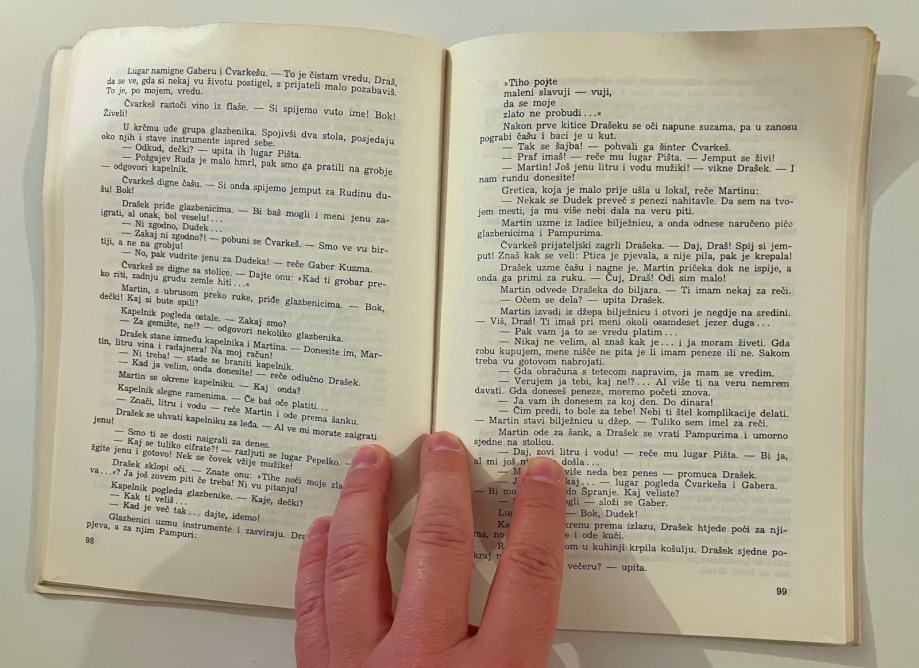 Lugar namigne Gaberu i Čvarkešu. — To je čistam vredu, Draš,
da se ve, gda si nekaj vu životu postigel, s prijateli malo pozabaviš.
To je, po mojem, vredu.
Čvarkeš rastoči vino iz flaše. — Si spijemo vuto ime! Bok!
Živeli!
U krčmu uđe grupa glazbenika. Spojivši dva stola, posjedaju
oko njih i stave instrumente ispred sebe.
— Odkud, dečki? — upita ih lugar Pišta.
— Požgajev Ruda je malo hmrl, pak smo ga pratili na grobje
— odgovori kapelnik.
Čvarkeš digne čašu. — Si onda spijemo jemput za Rudinu du-
šu! Bok!
Drašek priđe glazbenicima. — Bi baš mogli i meni jenu za-
igrati, al onak, bol veselu!...
— Ni zgodno, Dudek...
— Zakaj ni zgodno?! — pobuni se Čvarkeš. — Smo ve vu bir-
tiji, a ne na grobju!
— No, pak vudrite jenu za Dudeka! — reče Gaber Kuzma.
Čvarkeš se digne sa stolice. — Dajte onu: »Kad ti grobar pre-
ko riti, zadnju grudu zemle hiti...«
Martin, s ubrusom preko ruke, priđe glazbenicima. — Bok,
dečki! Kaj si bute spili?
Kapelnik pogleda ostale. — Zakaj smo?
— Za gemište, ne!? — odgovori nekoliko glazbenika.
Drašek stane između kapelnika i Martina. — Donesite im, Mar-
tin, litru vina i radajnera! Na moj račun!
— Ni treba! — stade se braniti kapelnik.
— Kad ja velim, onda donesite! — reče odlučno Drašek.
Martin se okrene kapelniku. — Kaj onda?
Kapelnik slegne ramenima. — Če baš oče platiti...
— Znači, litru i vodu — reče Martin i ode prema šanku.
Drašek se uhvati kapelniku za leđa. — Al ve mi morate zaigrati
jenu!
— Smo ti se dosti naigrali za denes.
— Kaj se tuliko cifrate?! — razljuti se lugar Pepelko. —
žgite jenu i gotovo! Nek se čovek vžije mužike!
Drašek sklopi oči. — Znate onu: »Tihe noči moje zla
va...«? Ja još zovem piti če treba! Ni vu pitanju!
Kapelnik pogleda glazbenike. — Kaje, dečki?
— Kak ti veliš...
— Kad je več tak... dajte, idemo!
Glazbenici uzmu instrumente i zasviraju. Dra
pjeva, a za njim Pampuri:
98
»Tiho pojte
maleni slavuji — vuji,
da se moje
zlato ne probudi...«
Nakon prve kitice Drašeku se oči napune suzama, pa u zanosu
pograbi čašu i baci je u kut.
— Tak se šajba! — pohvali ga šinter Čvarkeš.
— Praf imaš! — reče mu lugar Pišta. — Jemput se živi!
— Martin! Još jenu litru i vodu mužiki! — vikne Drašek. — I
nam rundu donesite!
Gretica, koja je malo prije ušla u lokal, reče Martinu:
— Nekak se Dudek preveč s penezi nahitavle. Da sem na tvo-
jem mesti, ja mu više nebi dala na veru piti.
Martin uzme iz ladice bilježnicu, a onda odnese naručeno piće
glazbenicima i Pampurima.
Čvarkeš prijateljski zagrli Drašeka. — Daj, Draš! Spij si jem-
put! Znaš kak se veli: Ptica je pjevala, a nije pila, pak je krepala!
Drašek uzme čašu i nagne je. Martin pričeka dok ne ispije, a
onda ga primi za ruku. — Čuj, Draš! Odi sim malo!
Martin odvede Drašeka do biljara. — Ti imam nekaj za reči.
— Očem se dela? — upita Drašek.
Martin izvadi iz džepa bilježnicu i otvori je negdje na sredini.
— Viš, Draš! Ti imaš pri meni okoli osamdeset jezer duga...
— Pak vam ja to se vredu platim...
— Nikaj ne velim, al znaš kak je... i ja moram živeti. Gda
robu kupujem, mene nišče ne pita je li imam peneze ili ne. Sakom
treba vu gotovom nahrojati.
— Gda obračuna s tetecom napravim, ja mam se vredim.
— Verujem ja tebi, kaj ne!?... Al više ti na veru nemrem
davati. Gda doneseš peneze, moremo početi znova.
— Ja vam ih donesem za koj den. Do dinara!
— Čim predi, to bole za tebe! Nebi ti štel komplikacije delati.
— Martin stavi bilježnicu u džep. — Tuliko sem imel za reči.
Martin ode za šank, a Drašek se vrati Pampurima i umorno
sjedne na stolicu.
— Daj, zovi litru i vodu! — reče mu lugar Pišta. — Bi ja,
al mi još došla...
više neda bez penes — promuca Drašek.
kaj... — lugar pogleda Čvarkeša i Gabera.
— Bi do Spranje. Kaj veliste?
— složi se Gaber.
— Bok, Dudek!
krenu prema izlazu, Drašek htjede poći za nji-
ma, no i ode kući.
u kuhinji krpila košulju. Drašek sjedne po-
kraj
večeru? — upita.
99